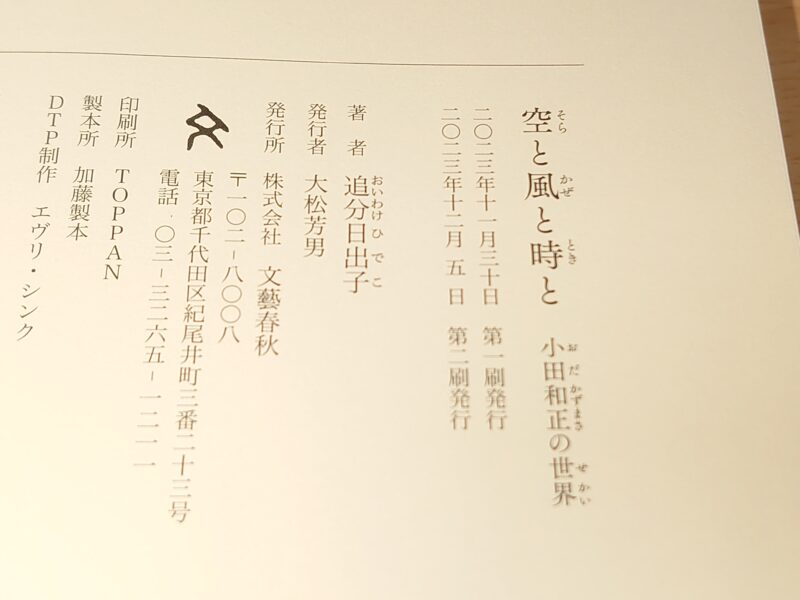 空と風と時と 小田和正の世界
そら かぜ とき おだかずまさ せかい
二〇二三年十一月三十日 第一刷発行
二〇二三年十二月 五 日 第二刷発行
著 者 追分日出子
おいわけひでこ
発行者 大松芳男
発行所 株式会社 文藝春秋
〒一〇二－八〇〇八
東京都千代田区紀尾井町三番二十三号
電話・〇三－三二六五－一二一一
印刷所 TOPPAN
製本所 加藤製本
DTP制作 エヴリ・シンク